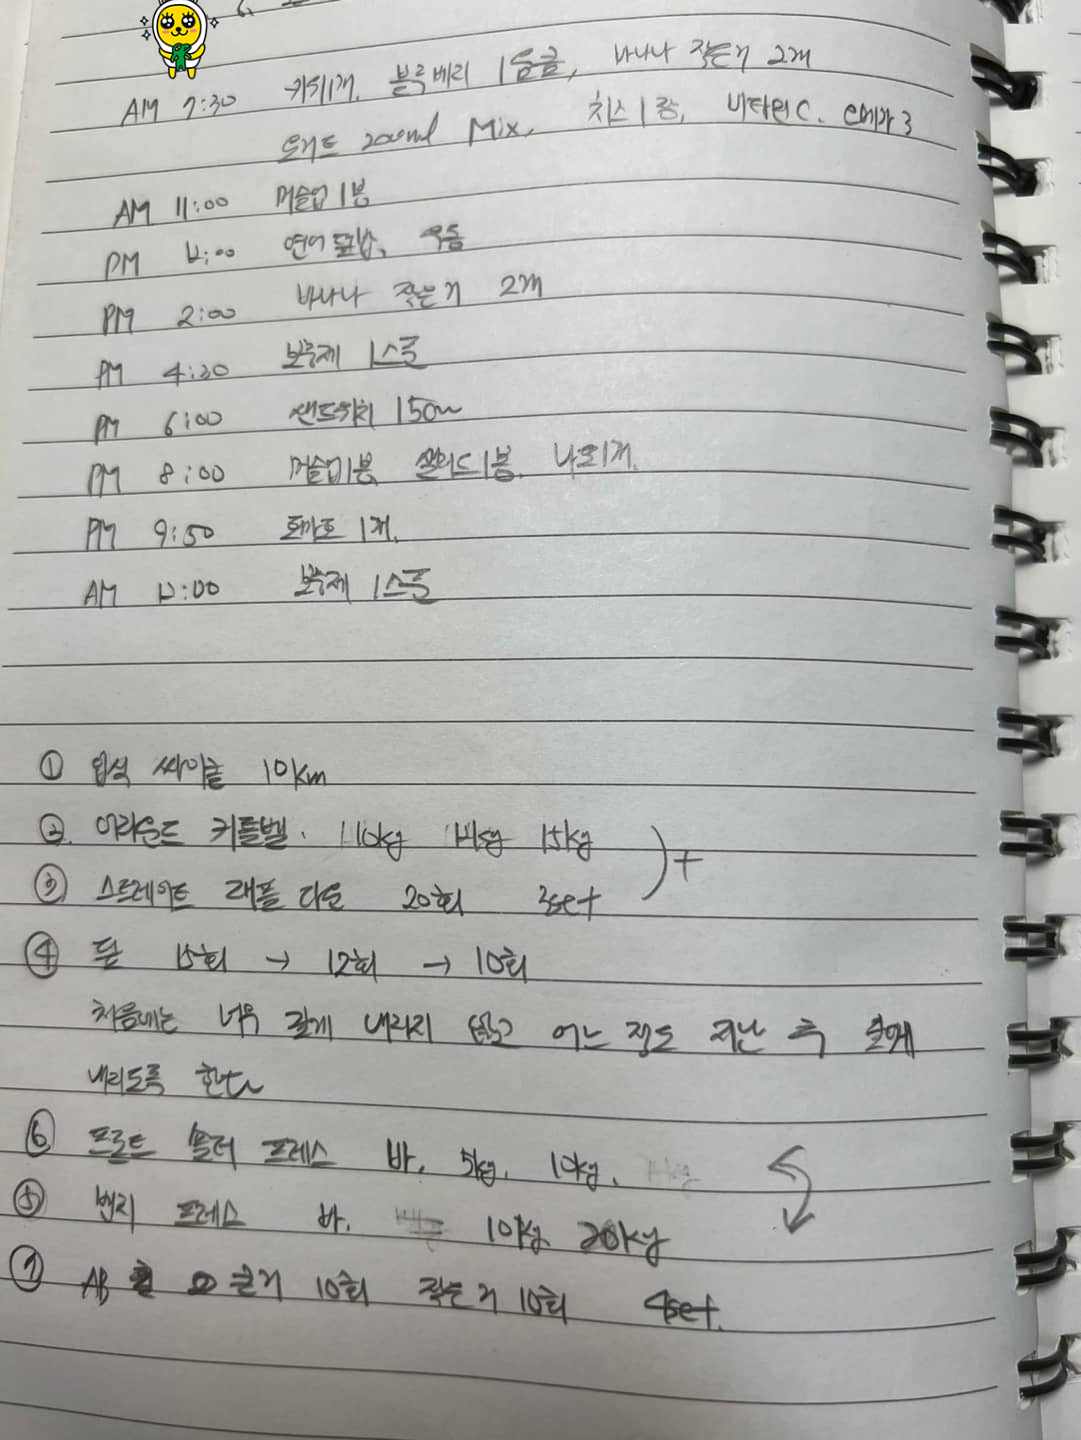 AM 7:30 키위1개, 블루베리 1움큼, 바나나 작은거 2개
요거트 200ml Mix, 치즈 1장, 비타민C, 오메가3
AM 11:00 머슬업 1봉
PM 12:00 연어 덮밥, 우동
PM 2:00 바나나 작은거 2개
PM 4:30 보충제 1스푼
PM 6:00 샌드위치 15cm
PM 8:00 머슬업1봉, 샐러드1봉,
PM 9:50 1개,
AM 12:00 보충제 1스푼
① 입식 싸이클 10km
② 어라운드 케틀벨. 10kg 14kg 15kg
③ 스트레이트 래풀 다운 20회 3set +
④ 딥 15회 → 12회 → 10회
처음에는 너무 깊게 내리지 않고 어느 정도 지난 후 깊게
내리도록 한다
⑥ 프론트 숄더 프레스 바, 5kg, 10kg,
⑤ 벤치 프레스 바, 10kg 20kg
⑦ AB 큰거 10회 작은거 10회 4set.